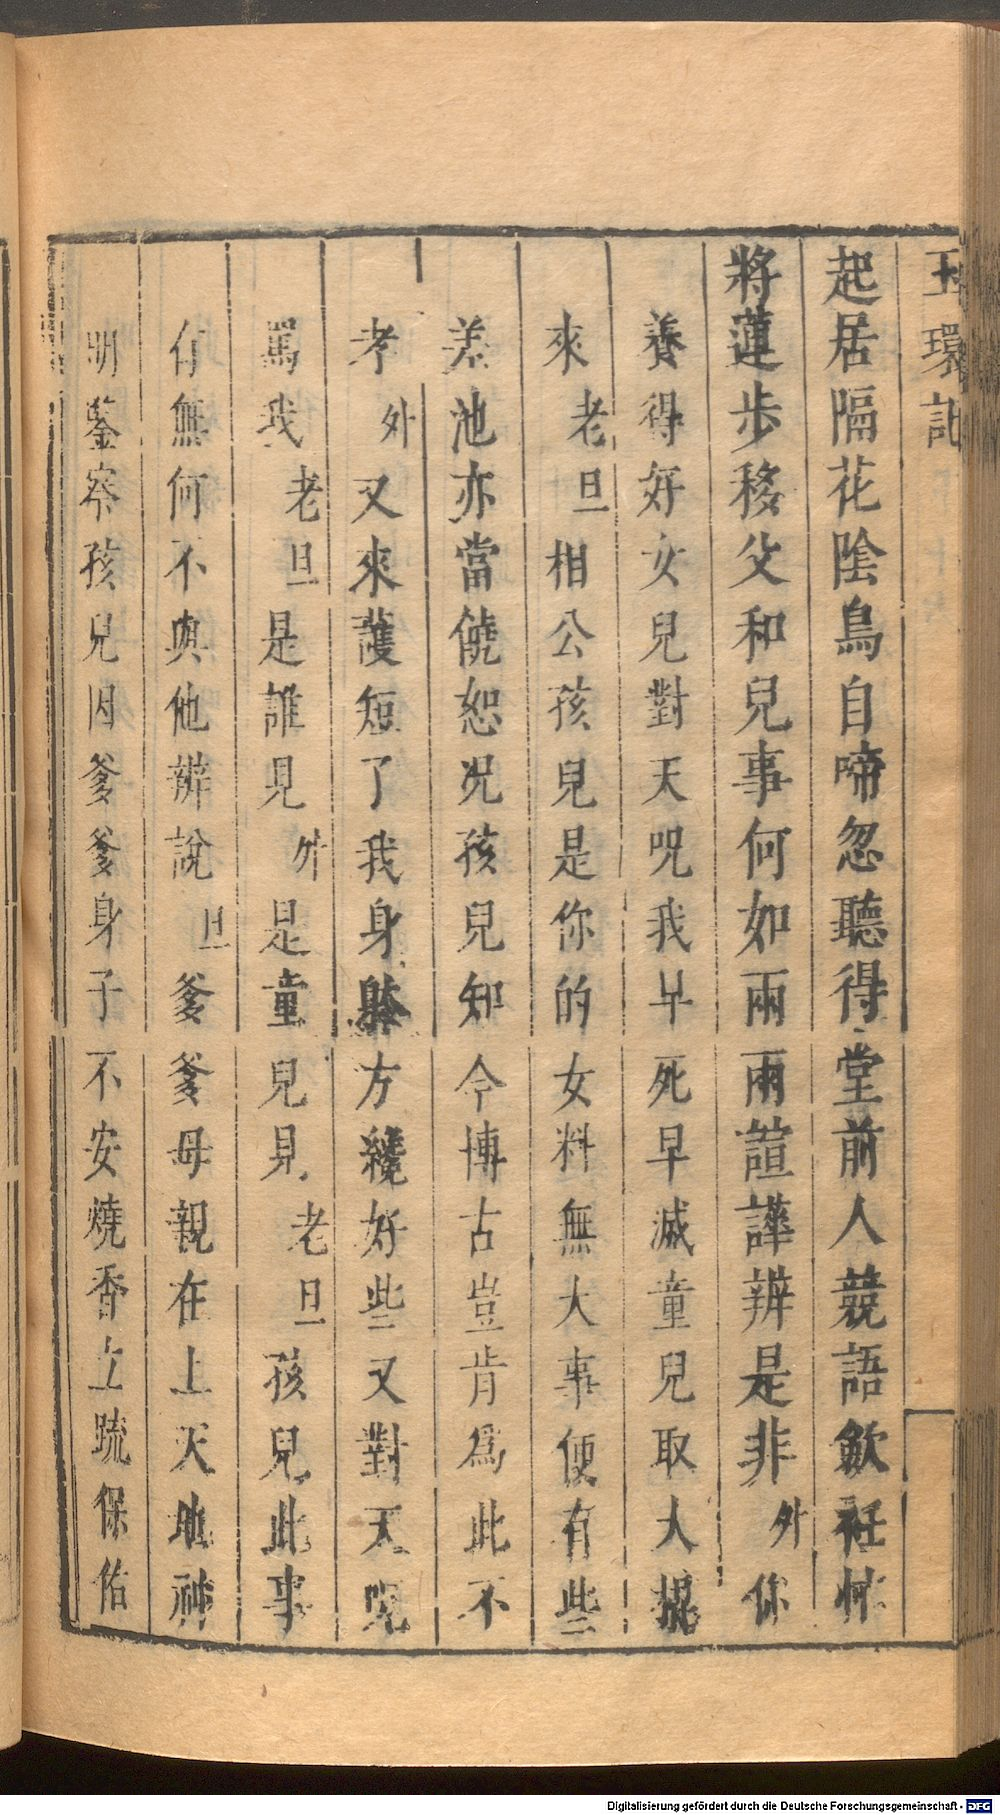 玉環記
起居隔花陰鳥自啼忽聽得堂前人競語歛衽忙
將蓮步移父和兒事何如兩兩諠譁辨是非外你
養得好女兒對天呪我早死早滅童兒取大棍
來老旦相公孩兒是你的女料無大事便有些
差池亦當饒恕况孩兒知今博古豈肯爲此不
孝外又來護短了我身躰方纔好些又對天呪
罵我老旦是誰見外是童兒見老旦孩兒此事
有無何不與他辨說旦爹爹母親在上天地神
明鑒察孩兒因爹爹身子不安燒香立䟽保佑
Digitalisierung gefördert durch die Deutsche Forschungsgemeinschaft - DFG